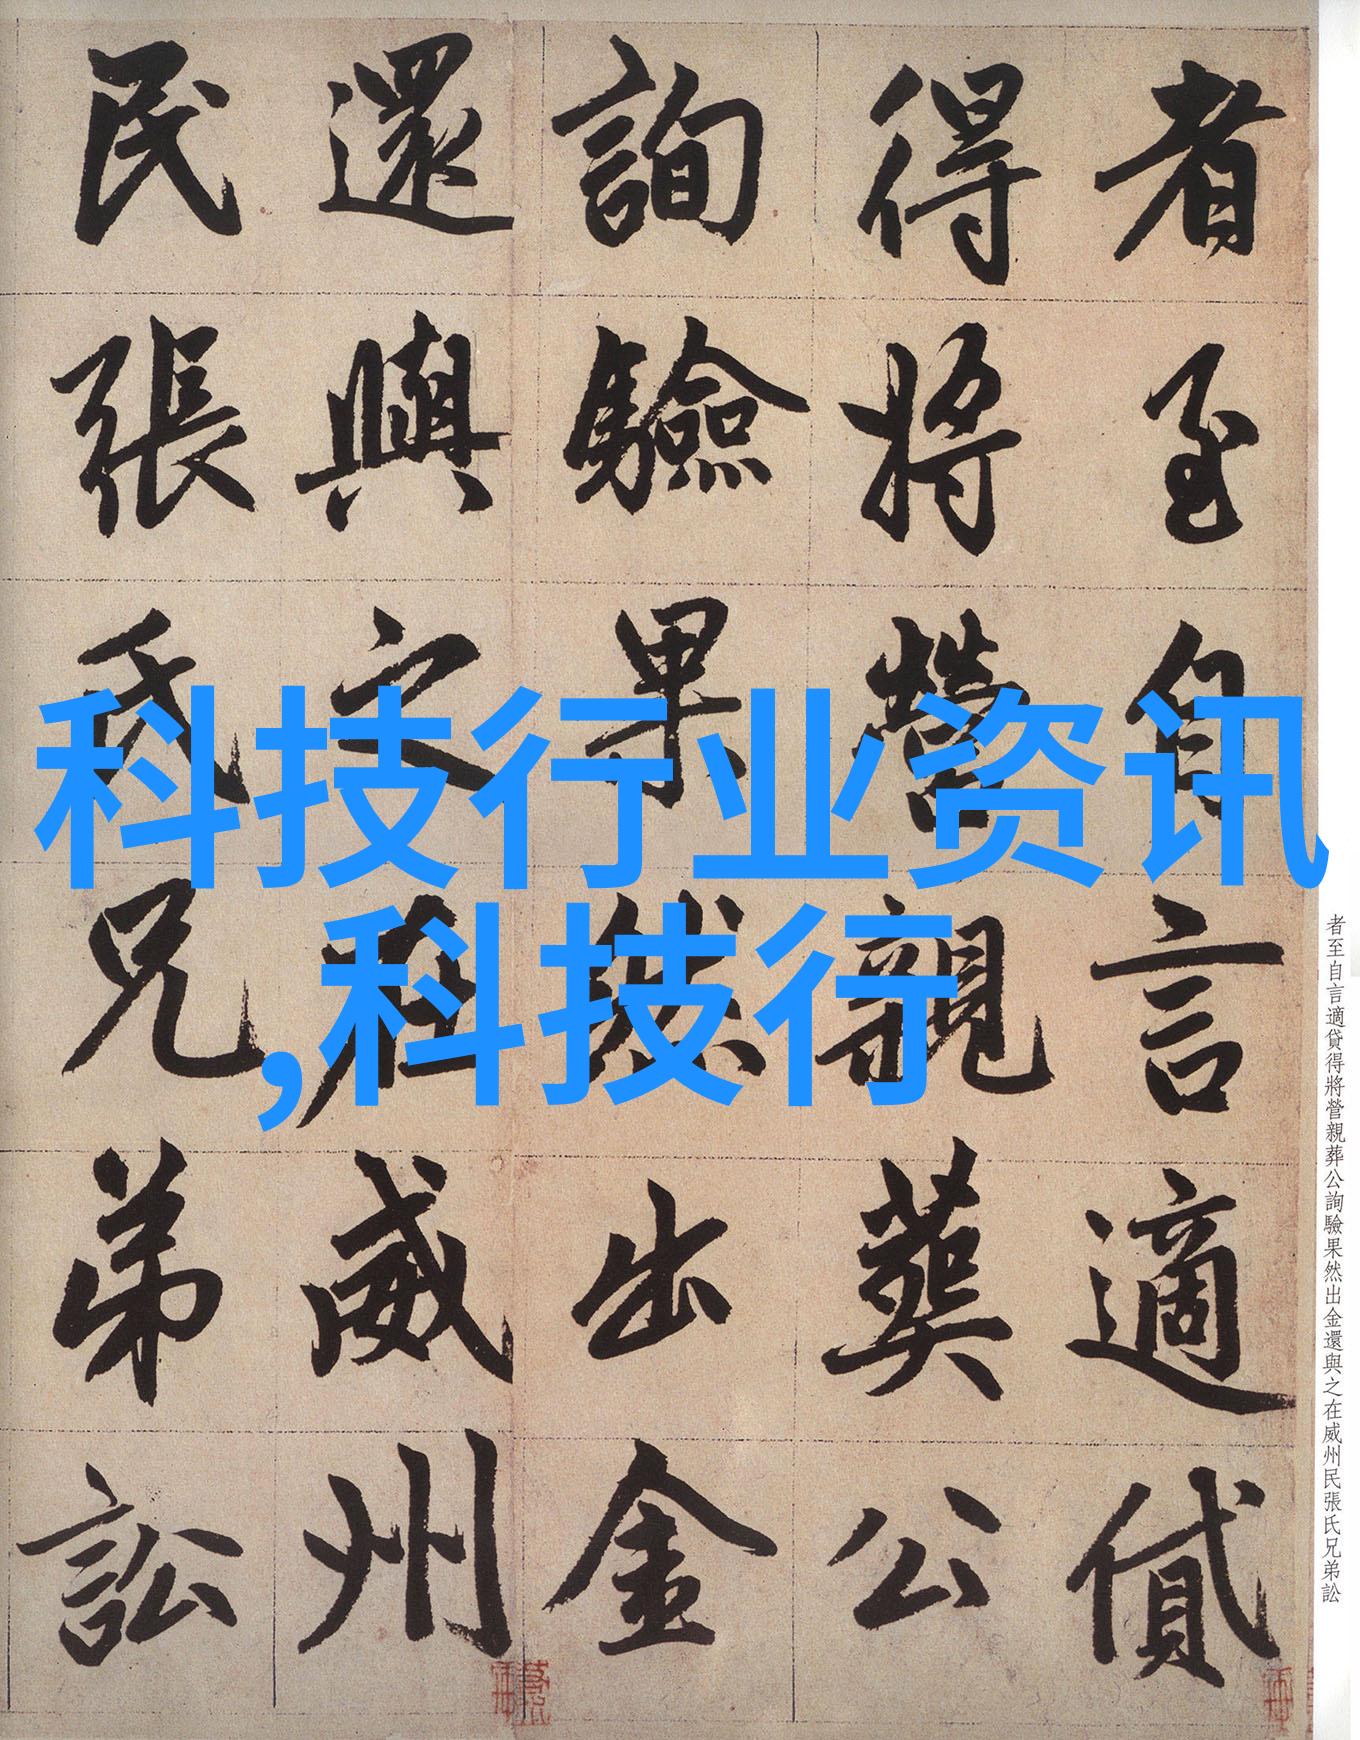 者至自言適貸
得將營親葬公
詢驗果然出金
還與之在威州
民張氏兄弟訟
科技行业资讯
,科技行
者至自言適貸得將營親葬公詢驗果然出金還與之在威州民張氏兄弟訟